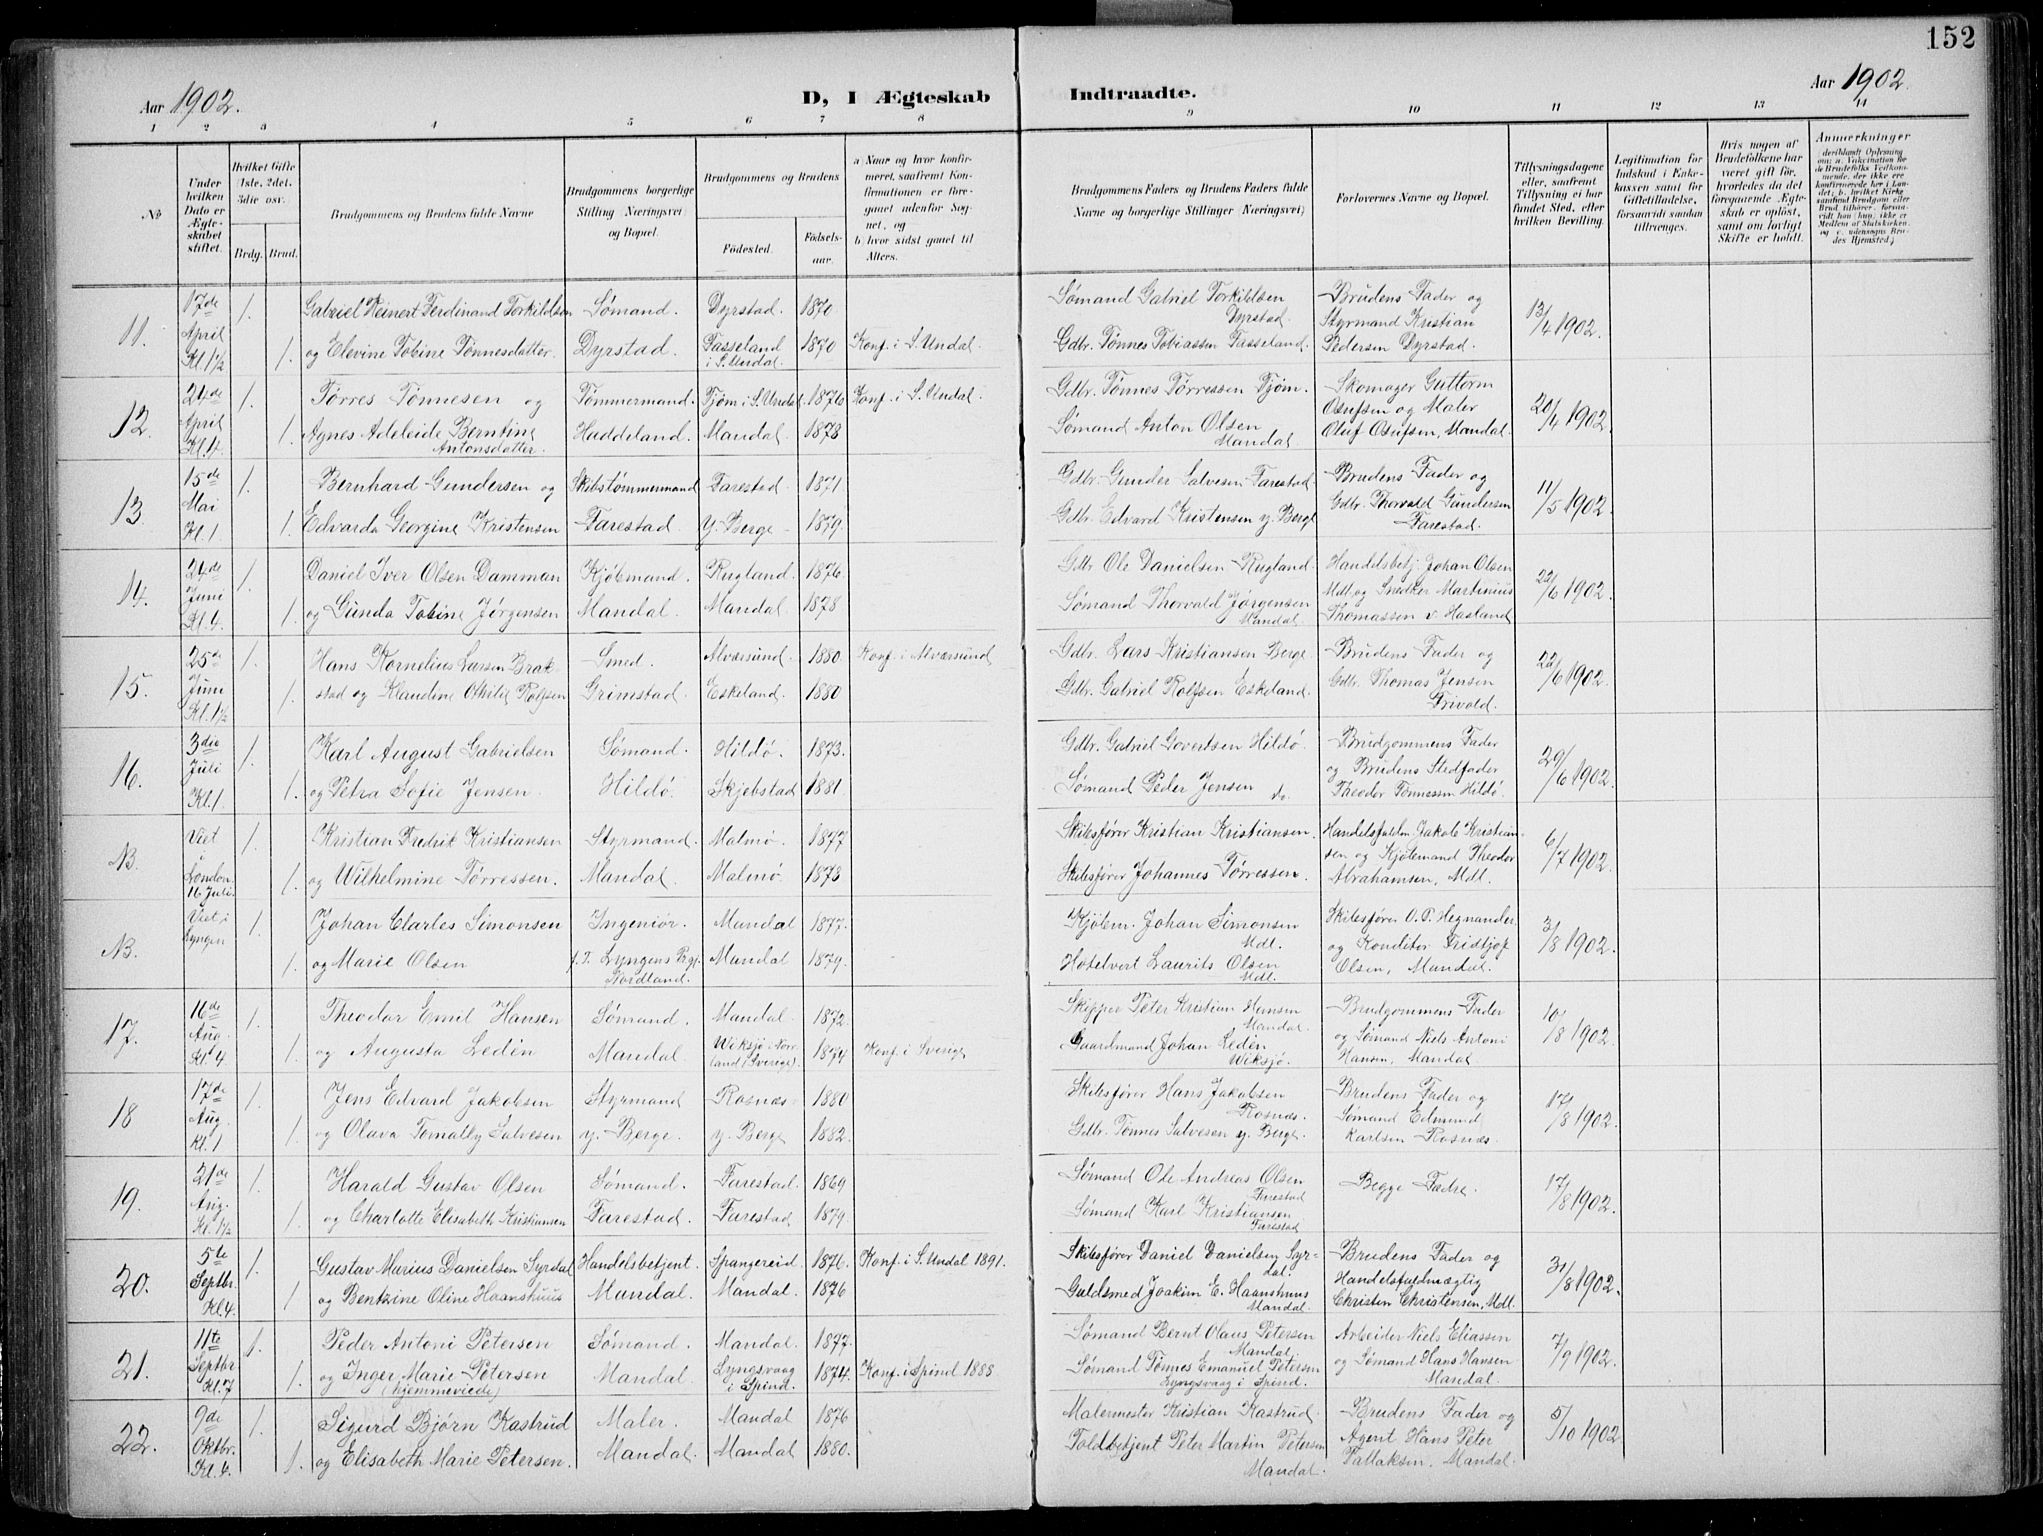 152
Aar 1902.
D, I Ægteskab Indtraadte.
Aar 1902.
1 2 3 4 5 6 7 8 9 10 11 12 13 14
No
Under hvilken Dato er Ægteskabet stiftet.
Hvilket Gifte 1ste, 2det, 3die osv.
Brdg. Brud.
Brudgommens og Brudens fulde Navne
Brudgommens borgerlige Stilling (Næringsvei) og Bopæl.
Brudgommens og Brudens
Fødested.
Fødsels-aar.
a) Naar og hvor konfirmeret, saafremt Konfirmationen er foregaaet udenfor Sognet, og
b) hvor sidst gaaet til Alters.
Brudgommens Faders og Brudens Faders fulde Navne og borgerlige Stillinger (Næringsvei)
Forlovernes Navne og Bopæl.
Tillysningsdagene eller, saafremt Tillysning ei har fundet Sted, efter hvilken Bevilling.
Legitimation for Indskud i Enkekassen samt for Giftetilladelse, forsaavidt saadan tiltrænges.
Hvis nogen af Brudefolkene har været gift før, hvorledes da det foregaaende Ægteskab er opløst, samt om lovligt Skifte er holdt.
Anmerkninger
11. 17de April Kl. 1½ 1. Gabriel Reinert Ferdinand Torkildsen Sømand. Dyrstad. 1870 Sømand Gabriel Torkildsen Dyrstad. Brudens Fader og Styrmand Kristian Pedersen Dyrstad. 13/4 1902.
1. og Elevine Tobine Tønnesdatter. Dyrstad. Fasseland i S. Undal. 1870 Konf. i S. Undal. Gdbr. Tønnes Tobiassen Fasseland.
12. 24de April Kl. 4. 1. Tørres Tønnesen og Tømmermand. Tjøm i S. Undal. 1876 Konf. i S. Undal. Gdbr. Tønnes Tørressen Tjøm. Skomager Guttorm Osufsen og Maler Oluf Osufsen, Mandal. 20/4 1902.
1. Agnes Adeleide Berntine Antonsdatter. Haddeland. Mandal. 1878 Sømand Anton Olsen Mandal.
13. 15de Mai Kl. 1. 1. Bernhard Gundersen og Skibstømmermand Farestad. 1871. Gdbr. Gunder Salvesen Farestad. Brudens Fader og Gdbr. Thorvald Gundersen Farestad. 11/5 1902.
1. Edvarda Georgine Kristensen Farestad. y. Berge 1879. Gdbr. Edvard Kristensen y. Berge
14. 24de Juni Kl. 4. 1. Daniel Iver Olsen Damman Kjøbmand. Rugland. 1876 Gdbr Ole Danielsen Rugland. Handelsbetj. Johan Olsen Mdl. og Snedker Martinius Thomassen v. Hasland 22/6 1902.
1. og Gunda Tobine Jørgensen Mandal. Mandal. 1878 Sømand Thorvald Jørgensen Mandal.
15. 25de Juni Kl. 1½ 1. Hans Kornelius Larsen Brakstad og Klaudine Othilie Rolfsen Smed. Alværsund. 1880. Konf. i Alværsund Gdbr. Lars Kristiansen Berge Brudens Fader og Gdbr. Thomas Jensen Frivold. 22/6 1902.
1. Grimstad. Eskeland. 1880 Gdbr. Gabriel Rolfsen Eskeland.
16. 3die Juli Kl. 1. 1. Karl August Gabrielsen Sømand. Hildø. 1873. Gdbr. Gabriel Govertsen Hildø. Brudgommens Fader og Brudens Stedfader Theodor Tønnessen Hildø. 29/6 1902.
1. og Petra Sofie Jensen. Hildø. Skjebstad 1881. Sømand Peder Jensen do.
NB. Viet i London 16 Juli. 1. Kristian Fredrik Kristiansen Styrmand. Malmø. 1877 Skibsfører Kristian Kristiansen. Handelsfuldm. Jakob Kristiansen og Kjøbmand Theodor Abrahamsen, Mdl. 6/7 1902.
1. og Wilhelmine Tørressen. Mandal. Malmø. 1873 Skibsfører Johannes Tørressen.
NB. Viet i Lyngen 1. Johan Charles Simonsen Ingeniør. Mandal 1877. Kjøbm. Johan Simonsen Mdl. Skibsfører O. P. Hegnander og Konditor Fridtjof Olsen, Mandal. 3/8 1902.
1. og Marie Olsen f. T. Lyngens Prgj. Nordland. Mandal 1879. Hotelvert Laurits Olsen Mdl.
17. 16de Aug. Kl. 4 1. Theodor Emil Hansen Sømand. Mandal. 1872. Skipper Peter Kristian Hansen Mandal. Brudgommens Fader og Sømand Niels Antoni Hansen, Mandal. 10/8 1902.
1. og Augusta Ledén Mandal. Wiksjö Norland (Sverige). 1874 Konf. i Sverige Gaardmand Johan Ledén Wiksjø.
18 17de Aug. Kl. 1 1. Jens Edvard Jakobsen Styrmand Rosnæs. 1880 Skibsfører Hans Jakobsen Rosnæs. Brudens Fader og Sømand Edmund Karlsen Rosnæs. 17/8 1902.
1. og Olava Tomally Salvesen y. Berge. y. Berge 1882. Gdbr. Tønnes Salvesen y. Berge.
19. 21de Aug. Kl. 1½ 1. Harald Gustav Olsen Sømand. Farestad. 1869 Sømand Ole Andreas Olsen Farestad Begge Fædre. 17/8 1902.
1. og Charlotte Elisabeth Kristiansen Farestad. Farestad 1879. Sømand Karl Kristiansen Farestad
20. 5te Septbr. Kl. 4. 1. Gustav Marius Danielsen Syrdal Handelsbetjent. Spangereid. 1876. Konf. i S. Undal 1891. Skibsfører Daniel Danielsen Syrdal. Brudens Fader og Handelsfuldmægtig Christen Christensen, Mdl. 31/8 1902.
1 og Bentzine Oline Haanshuus Mandal. Mandal. 1876 Guldsmed Joakim E. Haanshuus Mandal.
21. 11te Septbr Kl. 7 1. Peder Antoni Petersen Sømand. Mandal 1877. Sømand Bernt Olaus Petersen Mandal. Arbeider Niels Eliassen og Sømand Hans Hansen Mandal. 7/9 1902.
1. og Inger Marie Petersen (hjemmeviede) Mandal. Lyngsvaag i Spind. 1874. Konf. i Spind 1888 Sømand Tønnes Emanuel Petersen Lyngsvaag i Spind.
22. 9de Oktbr. Kl. 4. 1. Sigurd Bjørn Kastrud Maler. Mandal 1876 Malermester Kristian Kastrud. Brudens Fader og Agent Hans Peter Tallaksen, Mandal. 5/10 1902
1. og Elisabeth Marie Petersen. Mandal. Mandal 1880. Toldbetjent Peter Martin Petersen Mandal.